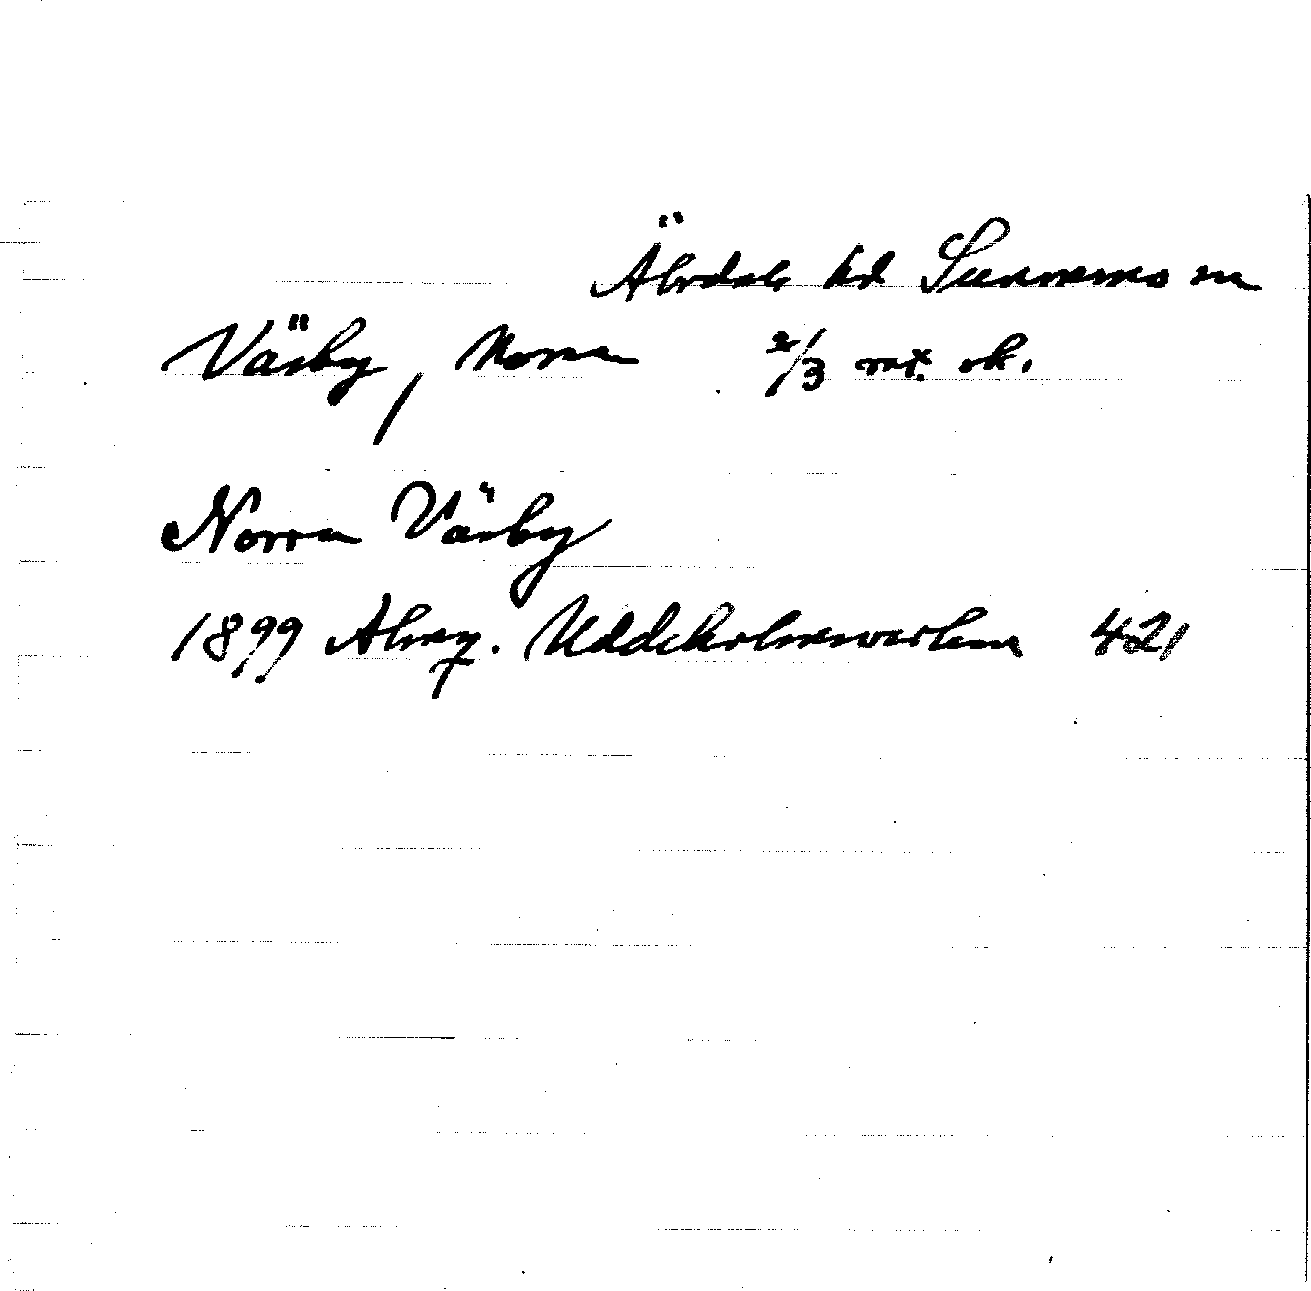 Älvdals hd Sunnemo sn
Väsby, Norra 2/3 mt. sk.
Norra Väsby
1899 Almq. Uddeholmsverken 421